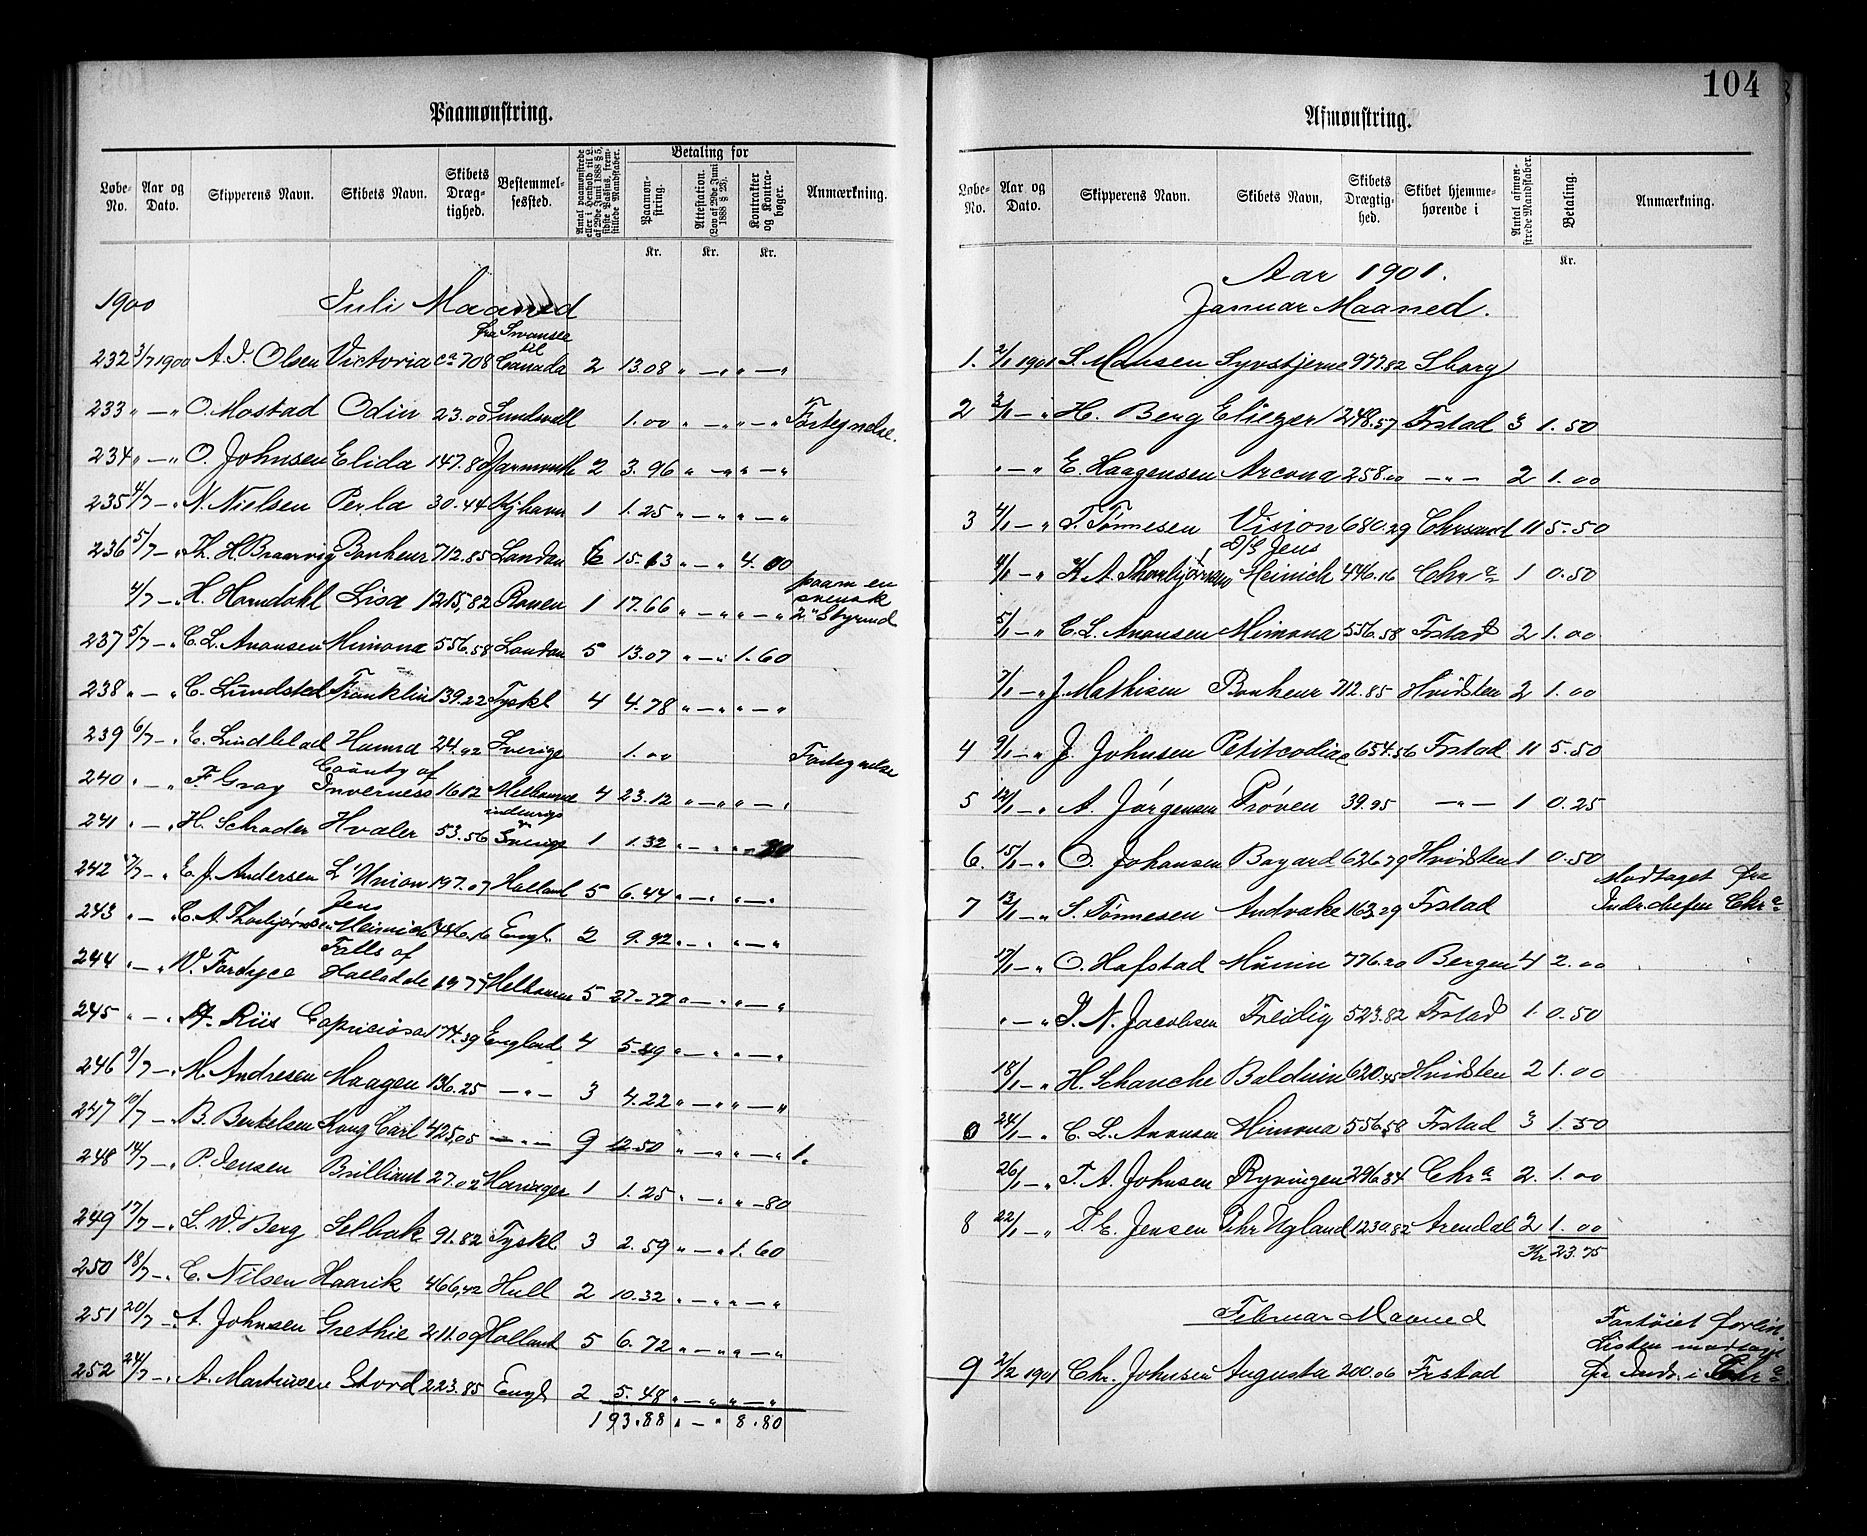 104
Paamønstring.
Løbe-No. Aar og Dato. Skipperens Navn. Skibets Navn. Skibets Dræg-tighed. Bestemmel-sessted. Antal paamønstrede eller i Henhold til L. af 29de Juni 1888 § 5, sidste Passus, frem-stillede Mandskaber. Betaling for Paamøn-string. Attestation. (Lov af 29de Juni 1888 § 23). Kontrakter og Kontra-bøger. Anmærkning.
Kr. Kr. Kr.
1900 Juli Maaned
fra Swansea til
232 3/7 1900 A. J. Olsen Victoria ca 708 Canada 2 13.08 " — " " — "
233 " — " O. Mostad Odin 23.00 Sundsvall 1.00 " — " " — " Fortegnelse.
234 " — " O. Johnsen Elida 147.80 Yarmouth 2 3.96 " — " " — "
235 4/7 — " N. Nielsen Perla 30.44 Kjhavn 1 1.25 " — " " — "
236 5/7 — " Th. H. Braarvig Bonheur 712.85 London 6 15.63 " — " 4.00
paam en svensk
4/7 — " H. Horndahl Lisa 1215,82 Rouen 1 17.66 " — " " — " 2" Styrmd
237 5/7 — " C. L. Anonsen Mimona 556.58 London 5 13.07 " — " 1.60
238 " — " C. Lundsted Franklin 139.22 Tyskl 4 4.78 " — " " — "
239 6/7 — " E. Lindblad Hanna 24.92 Sverige 1.00 Fortegnelse
County of
240 " — " F. Gray Inverness 1612 Melbourne 4 23.12 " — " " — "
indenrigs &
241 " — " H. Schrader Hvaler 53.56 Sverige 1 1.32 " — " " — 80
242 7/7 — " E. J. Andersen L'Union 197.07 Holland 5 6.44 " — " " — "
Jens
243 " — " C. A. Thorbjørnsen Meinich 446.16 Engl. 2 9.92 " — " " — "
Falls of
244 " — " W. Fordyce Halladale 1977 Melbourne 5 27.72 " — " " — "
245 " — " A. Riis Capriciosa 174.39 England 4 5.49 " — " " — "
246 9/7 — " M. Andresen Haagen 136.25 — " — 3 4.22 " — " " — "
247 10/7 — " B. Berkelsen Kong Carl 425,05 — " — 9 12.50 " — " " — " 1.
248 14/7 — " P. Jensen Brilliant 27.02 1 1.25 " — " " — 80
249 17/7 — " L. W. Berg Selbak 91.82 Tyskl 3 2.59 " — " 1.60
250 18/7 — " C. Nilsen Haarik 466,42 Hull 2 10.32 " — " " — "
251 20/7 — " A. Johnsen Grethie 211.09 Holland 5 6.72 " — " " — "
252 24/7 — " A. Martinsen Stord 223.85 Engl 2 5.48 " — " " — "
193.88 " — " 8.80
Afmønstring.
Løbe-No. Aar og Dato. Skipperens Navn. Skibets Navn. Skibets Drægtig-hed. Skibet hjemme-hørende i Antal afmøn-strede Mandskaber. Betaling. Anmærkning.
Kr.
Aar 1901.
Januar Maaned.
1. 2/1 1901 S. Hansen Syvstjerne 977.82 Sborg
2 3/1 — " H. Berg Eliezer 1248.57 Frstad 3 1.50
" — " E. Haagensen Arcona 258.00 — " — 2 1.00
3 4/1 — " T. Tønnesen Vision 680.29 Chrsand 11 5.50
D/S Jens
4/1 — " K. A. Thorbjørnsen Meinich 446.16 Chr a 1 0.50
5/1 — " C. L. Anonsen Mimona 556.58 Frstad 2 1.00
7/1 — " J. Mathisen Bonheur 712.85 Hvidsten 2 1.00
4 9/1 — " J. Johnsen Petitcodiac 654.56 Frstad 11 5.50
5 12/1 — " A. Jørgensen Prøven 39.95 — " — 1 0.25
6. 15/1 — " O. Johansen Bayard 626.79 Hvidsten 1 0.50
Modtaget fra
7 12/1 — " S. Tønnesen Andvake 163.29 Frstad Indr.chefen Chr a
17/1 — " O. Hafstad Munin 776.20 Bergen 4 2.00
" — " J. N. Jacobsen Freidig 523.82 Frstad 1. 0.50
18/1 — " H. Schanche Balduin 620.45 Hvidsten 2 1.00
0 24/1 — " C. L. Anonsen Mimona 556.58 Frstad 3 1.50
26/1 — " T. A. Johnsen Ryvingen 296.84 Chr a 2. 1.00
8 22/1 — " T. E. Jensen Johr Ugland 1230.82 Arendal 2 1.00
Kr 23.75
Februar Maaned
Fartøiet forlist.
Listen modtaget
9 2/2 1901 Chr. Johnsen Augusta 200.06 Frstad fra Indr. i Chr a